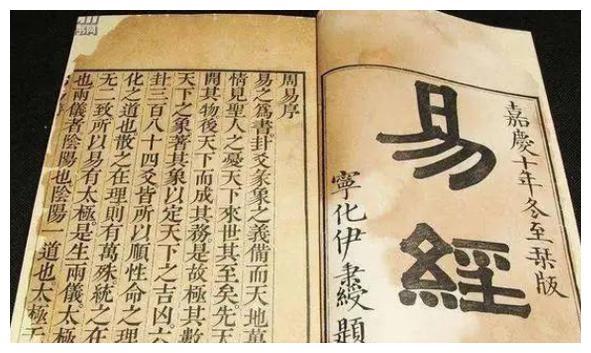 嘉慶十年冬至栞版
易經
寧化伊秉綬題
周易序
易之爲書卦爻彖象之義備而天地萬
情見聖人之憂天下來世其至矣。先天
開其物後天下而成其務。是故極其數
天下之象著其象以定天下之吉凶。六
卦三百八十四爻皆所以順性命之理
化之道也散之在理則有萬殊。統之在
無二致所以易有太極。是生兩儀太極
也兩儀者陰陽也陰陽一道也太極无